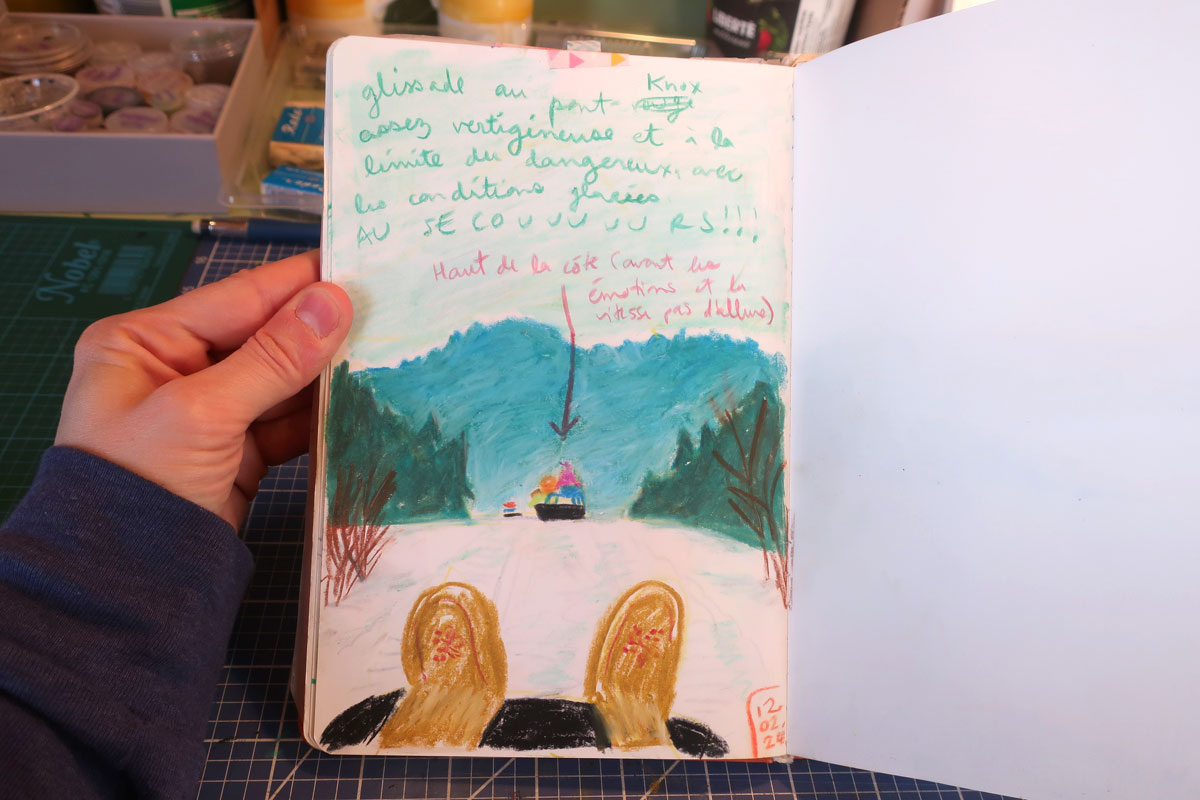 LIBERTÉ
Nobel
glissade au pont Knox
assez vertigineuse et à la
limite du dangereux, avec
les conditions glacées
AU SECOUUUUURS!!!
Haut de la côte (avant les
émotions et la
vitesse pas d'allure)
12
02.
24